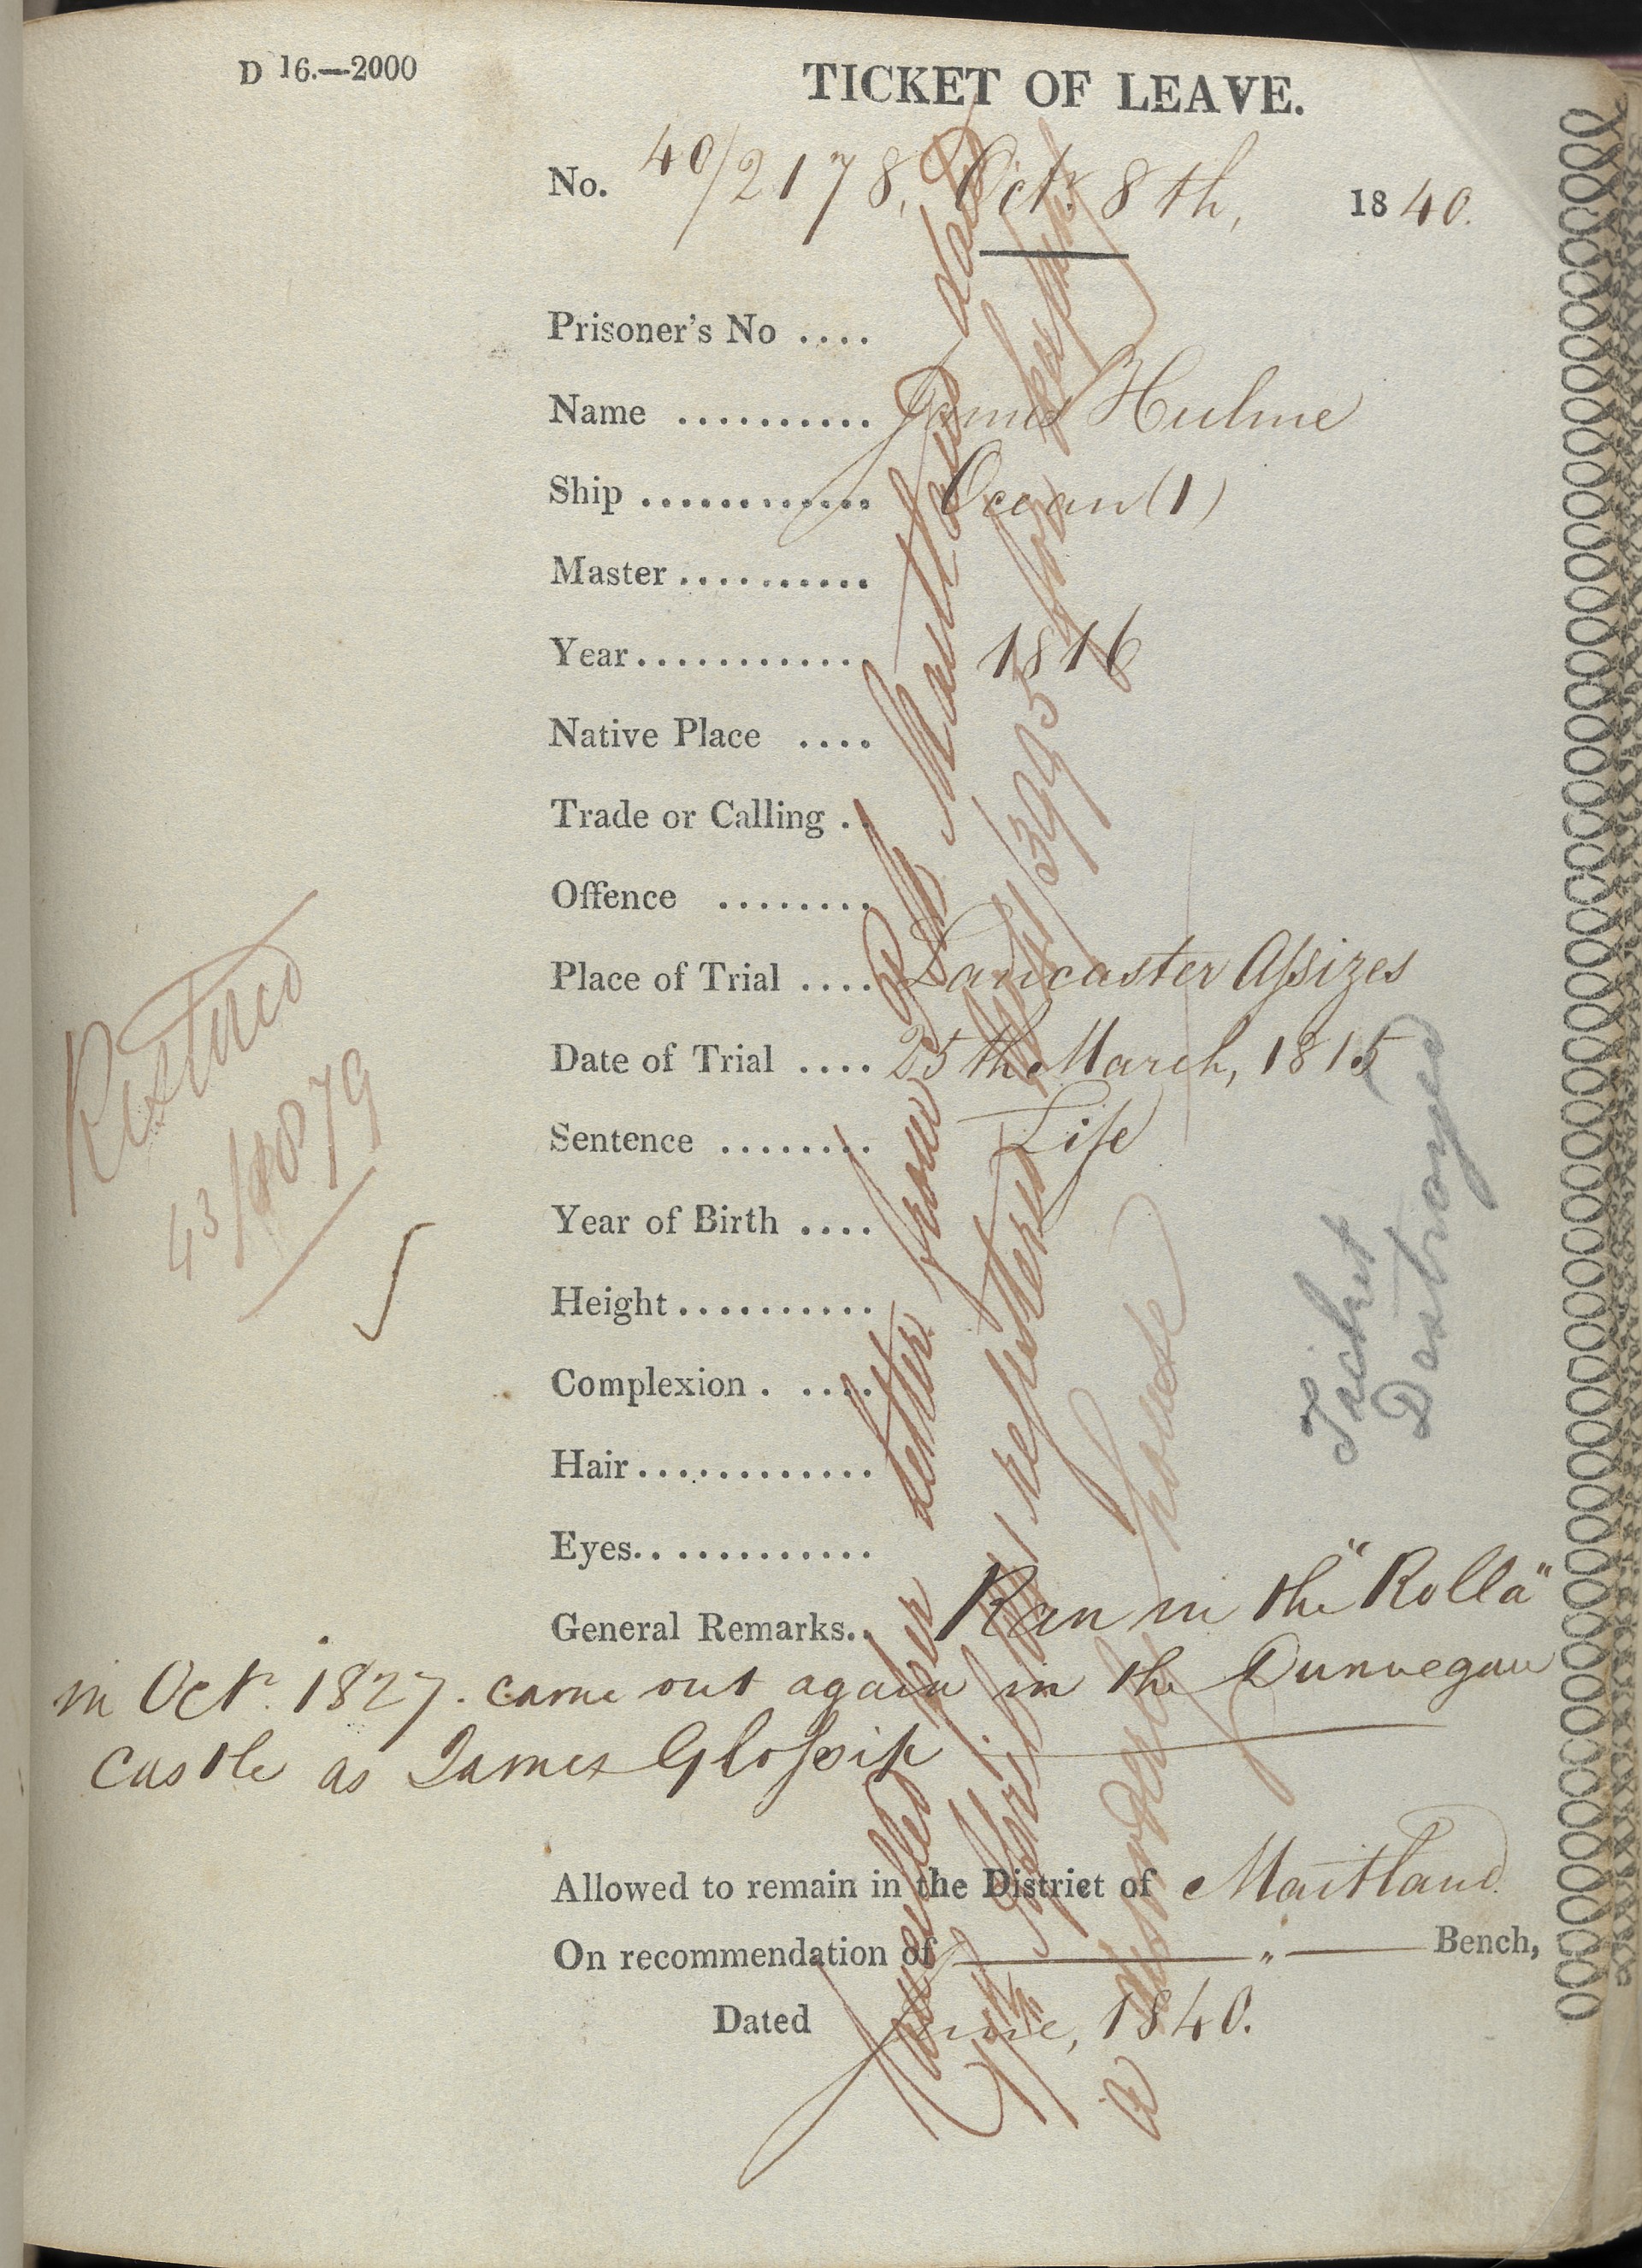 D 16.—2000
TICKET OF LEAVE.
No. 40/2178, Octr. 8th, 1840.
Prisoner's No ....
Name .......... James Hulme
Ship ............ Ocean (1)
Master ...........
Year ............ 1816
Native Place ....
Trade or Calling ..
Offence ........
Place of Trial .... Lancaster Assizes
Date of Trial .... 25th March, 1815
Sentence ........ Life
Year of Birth ....
Height ..........
Complexion . ....
Hair .............
Eyes..............
General Remarks.. Ran in the "Rolla"
in Octr. 1827. came out again in the Dunvegan
Castle as James Glossip
Allowed to remain in the District of Maitland
On recommendation of — " — Bench,
Dated June, 1840.
Cancelled per letter from Bench Maitland dated
April 1841 registered 41/3995 for keeping
a disorderly house
Restored
43/8079
Ticket
Destroyed